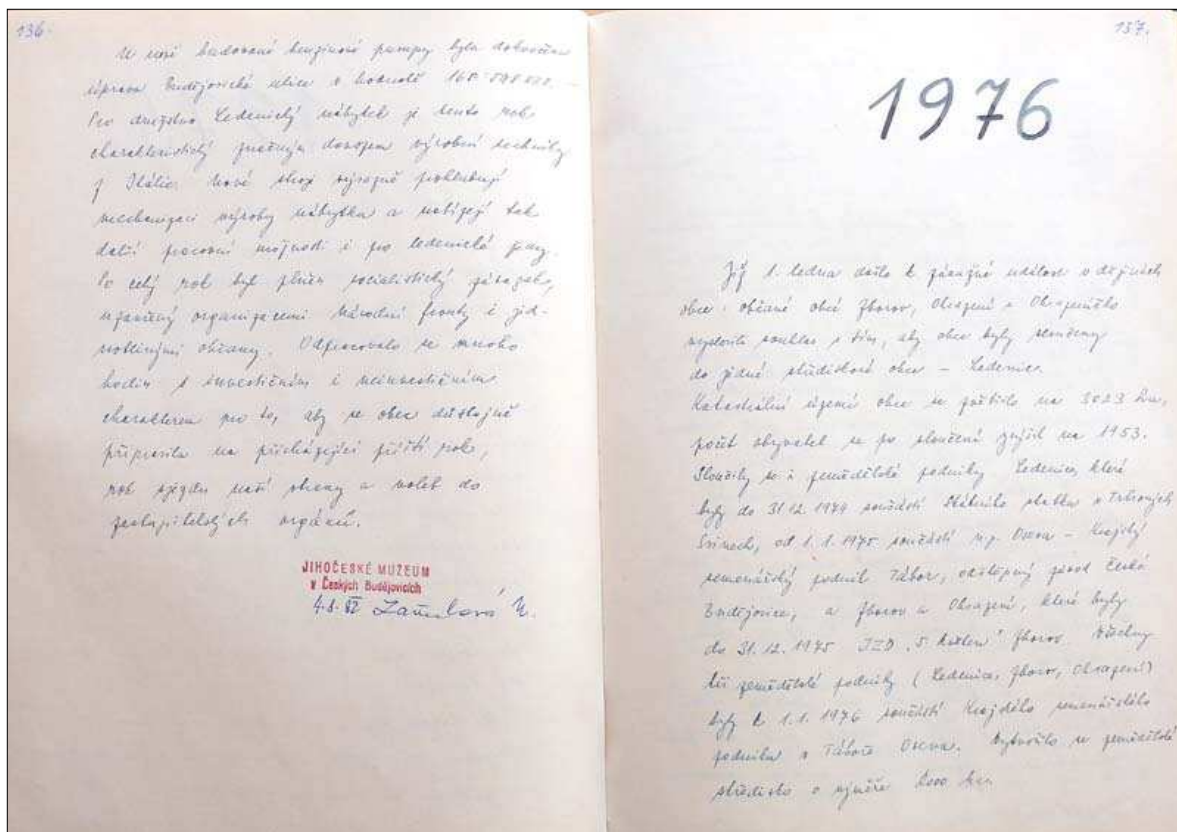 136.
U nově budované benzinové pumpy byla dokončena
úprava Budějovické ulice v hodnotě
Pro družstvo Ledenický nábytek je tento rok
charakteristický značným dovozem výrobní techniky
z Itálie. Nové stroje výrazně
mechanizaci výroby nábytku a nabízejí tak
další pracovní možnosti i pro ledenické ženy.
Po celý rok byl plněn socialistický závazek,
uzavřený organizacemi Národní fronty i jed-
notlivými občany. Odpracovalo se mnoho
hodin s investičním i neinvestičním
charakterem pro to, aby se obec důstojně
připravila na přicházející příští rok,
rok sjezdu naší strany a voleb do
zastupitelských orgánů.
JIHOČESKÉ MUZEUM
v Českých Budějovicích
4.8.82
137.
1976
Již 1. ledna došlo k závažné události v dějinách
obce: občané obcí Zborov, Ohrazení a Ohrazeníčko
vyslovili souhlas s tím, aby obce byly sloučeny
do jedné střediskové obce – Ledenice.
Katastrální území obce se zvětšilo na 3023 ha,
počet obyvatel se po sloučení zvýšil na 1953.
Sloučily se i zemědělské podniky Ledenice, které
byly do 31.12.1974 součástí Státního statku v Trhových
Svinech, od 1.1.1975 součástí n.p. Oseva – Krajský
semenářský podnik Tábor, odštěpný závod České
Budějovice, a Zborov a Ohrazení, které byly
do 31.12.1975 JZD „5. květen" Zborov. Všechny
tři zemědělské podniky (Ledenice, Zborov, Ohrazení)
byly k 1.1.1976 součástí Krajského semenářského
podniku v Táboře Oseva. Vytvořilo se zemědělské
středisko o výměře 2000 ha.